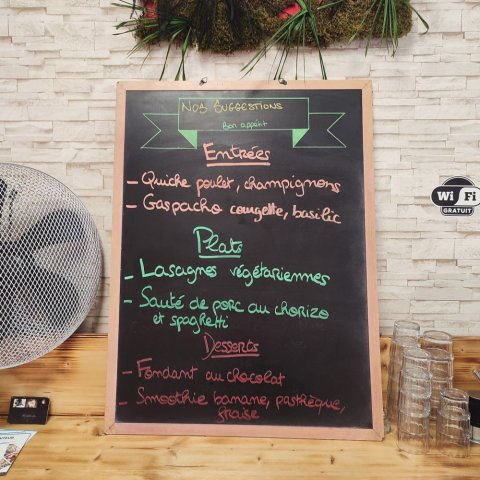 Nos Suggestions
Bon appétit
Entrées
- Quiche poulet, champignons
- Gaspacho courgette, basilic
Plats
- Lasagnes végétariennes
- Sauté de porc au chorizo
et spaghetti
Desserts
- Fondant au chocolat
- Smoothie banane, pastèque,
fraise
Wi Fi
GRATUIT